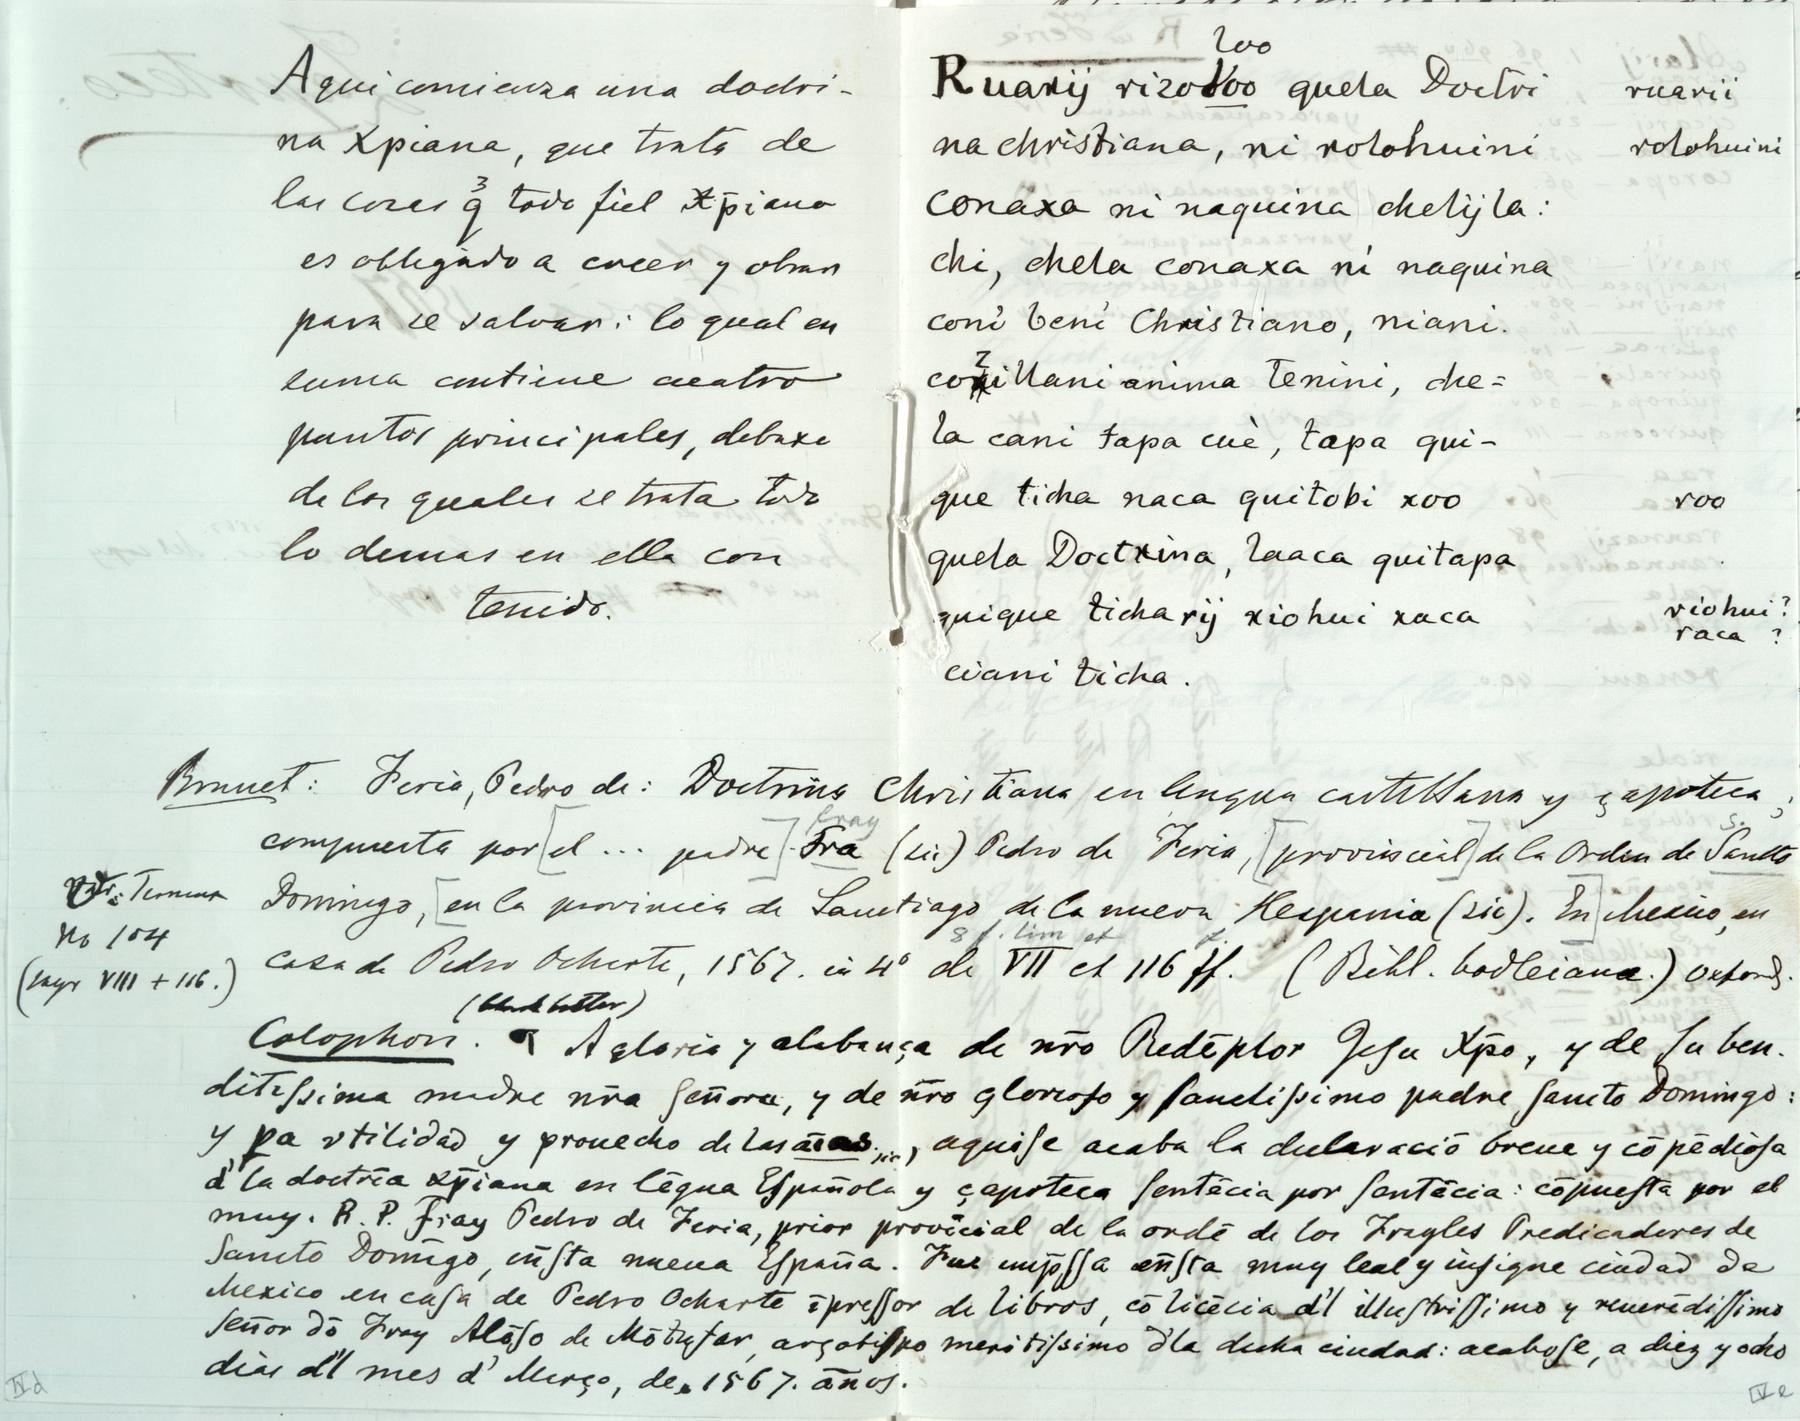 Aqui comienza una doctri-
na Xpiana, que trata de
las cosas q̃ todo fiel Xp̄iano
es obligado a creer y obrar
para se salvar: lo qual en
suma contiene cuatro
puntos principales, debaxo
de los quales se trata todo
lo demas en ella con
tenido.
loo
Ruarij rizoloo quela Doctri
na christiana, ni rolohuini
conaxa ni naquina chelijla:
chi, chela conaxa ni naquina
coni beni Christiano, niani.
collani anima tenini, che=
la cani tapa cuè, tapa qui-
que ticha naca quitobi xoo
quela Doctrina, laaca quitapa
quique ticharij xiohui xaca
ciani ticha.
ruarii
rolohuini
roo
riohui?
raca ?
Brunet: Feria, Pedro de: Doctrina Christiana en lengua castellana y çapoteca;
fray
compuesta por [el ... padre] Fra (sic) Pedro de Feria, [provinscial] de la Orden de Sancto
S.
Domingo, [en la provincia de Sanctiago de la nueva Hespania (sic). En] Mexico, en
8 f. lim et f.
casa de Pedro Ocharte, 1567. in 4° de VII et 116 ff. (Bibl. bodleiana.) Oxford.
Ternaux
No 104
(says VIII + 116.)
(black letter)
Colophon. ¶ A gloria y alabança de nr̄o Redēptor Jesu Xp̄o, y de su ben.
ditissima madre nr̄a señora, y de nr̄o glorioso y sanctissimo padre sancto Domingo:
y pa vtilidad y prouecho de las āīas sic, aqui se acaba la declaraciō breue y cōpēdiosa
d' la doctrīa xp̄iana en lēgua Española y çapoteca sentēcia por sentēcia: cōpuesta por el
muy. R. P. fray Pedro de Feria, prior provīcial de la ordē de los Frayles Predicadores de
Sancto Domīgo, ēnsta nueua España. Fue imp̄ssa ēnsta muy leal y insigne ciudad de
Mexico en casa de Pedro Ocharte īpressor de libros, cō licēcia d'l illustrissimo y reuerēdissimo
señor dō Fray Alōso de Mōtufar, arçobispo meritissimo d'la dicha ciudad: acabose, a diez y ocho
dias d'l mes d' Março, de. 1567. años.
IVd
Ve